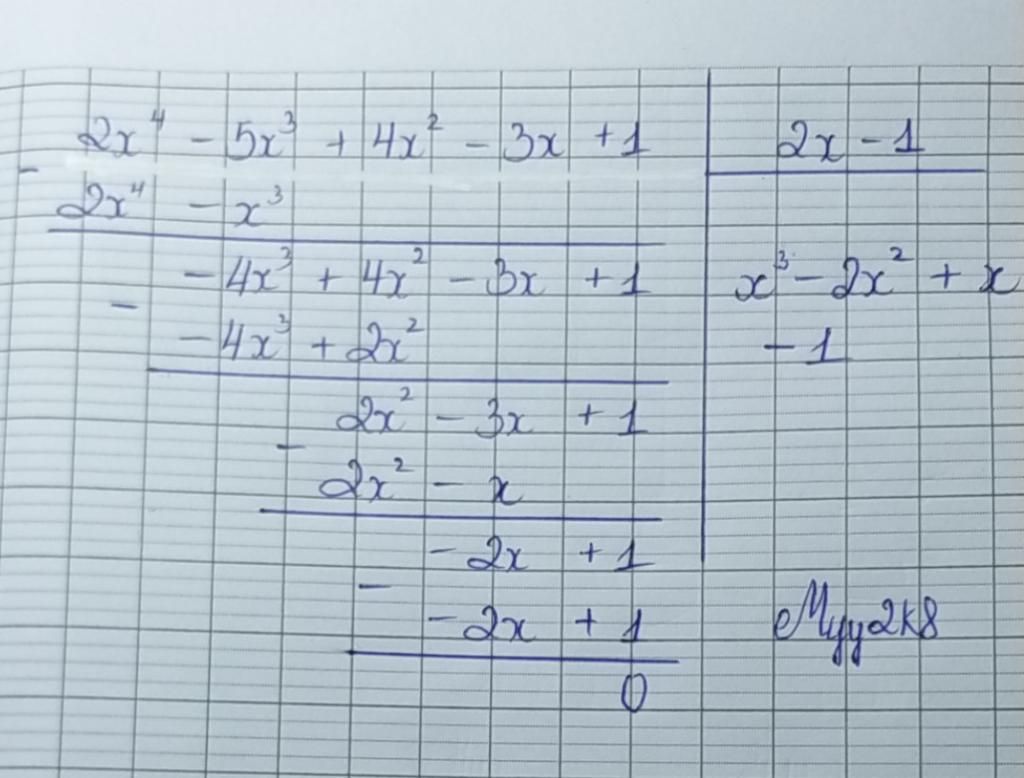 2x⁴ - 5x³ + 4x² - 3x + 1 | 2x - 1
-
2x⁴ - x³
- 4x³ + 4x² - 3x + 1 | x³ - 2x² + x
-
- 4x³ + 2x² | - 1
2x² - 3x + 1
-
2x² - x
- 2x + 1
-
- 2x + 1
Myy2k8
0